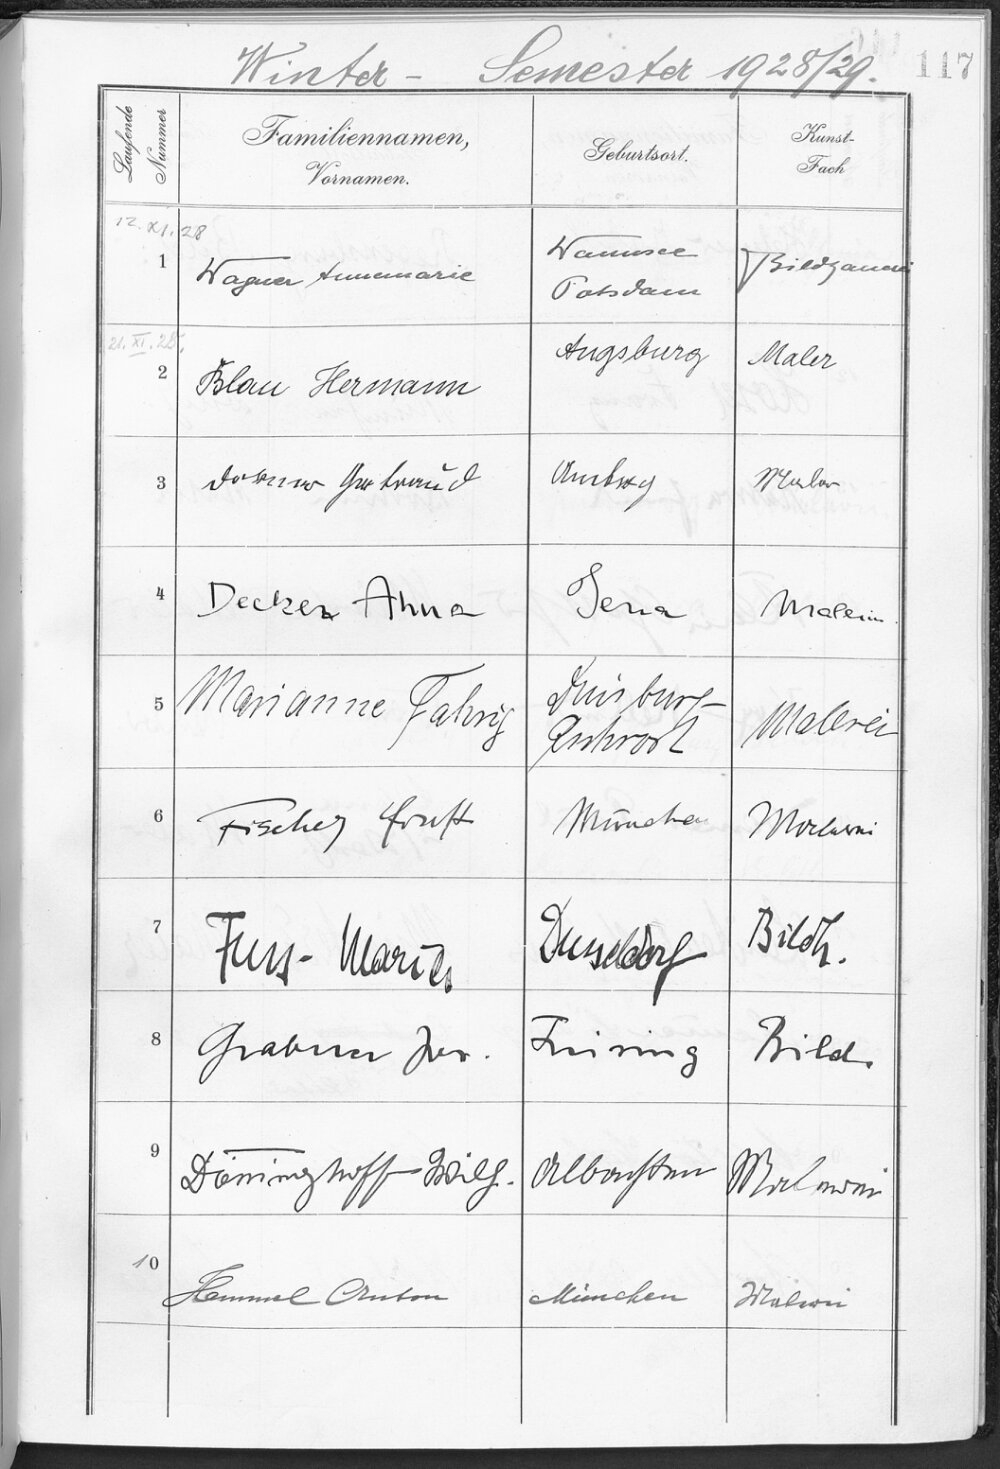 Winter - Semester 1928/29.
117
Laufende Nummer
Familiennamen, Vornamen.
Geburtsort.
Kunst-Fach
12. XI. 28
1 Wagner Annemarie
Wannsee
Potsdam
Bildhauerei
21. XI. 28.
2 Blau Hermann
Augsburg
Maler
3 Gertraud
Maler
4 Decker Anna
Jena
Malerin
5 Marianne Fahrig
Duisburg-
Ruhrort
Malerei
6 Fischer Ernst
München
Malerei
7 Fuss- Maria
Dusseldorf
Bildh.
8 Grabner Jos.
Freising
Bild.
9 Dönninghoff Wilh.
Albachten
Malerei
10 Hemmel Anton
München
Malerei